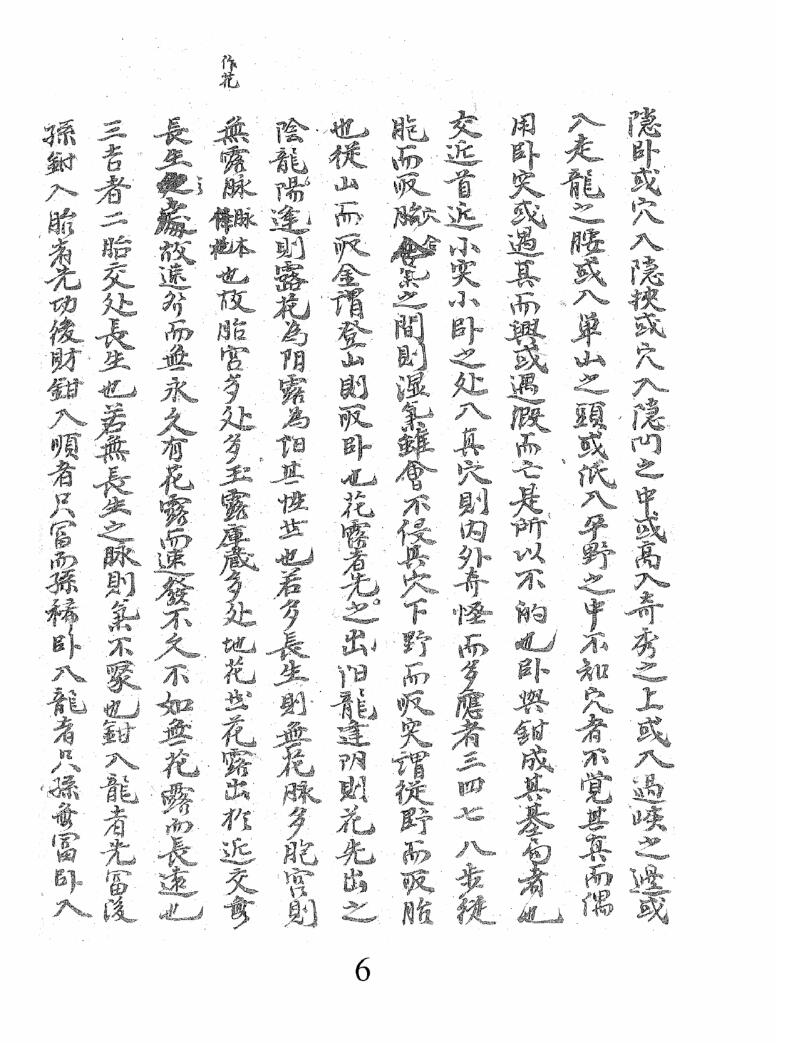 隠卧或穴入隠挾或穴入隠凹之中或高入奇秀之上或入過峽之邊或
入走龍之腰或入單山之頭或低入平野之中不知穴者不覚其真而偶
用卧突或遇其而興或遇假而亡是所以不的也卧與鉗成其基局者也
交近首近小突小卧之处入真穴則内外奇怪而多應者三四七八步從
胞而収胎穴氣之間則湿氣雖會不侵其穴下野而収突謂從野而収胎
也從山而収金謂登山則収卧也花露者先之出阳龍逢阴則花先出之
陰龍陽逢則露花為阴露為阳其性然也若多長生則無花脉多胞宮則
作花
無露脉脉本作花也故胎宮多处多玉露庫藏多处地花出花露出於近交無
長生處故速發而無永久有花露而速發不久不如無花露而長遠也
三吉者二胎交处長生也若無長生之脉則氣不聚也鉗入龍者先富後
孫鉗入胎者先功後財鉗入順者只富而孫稀卧入龍者只孫無富卧入
6